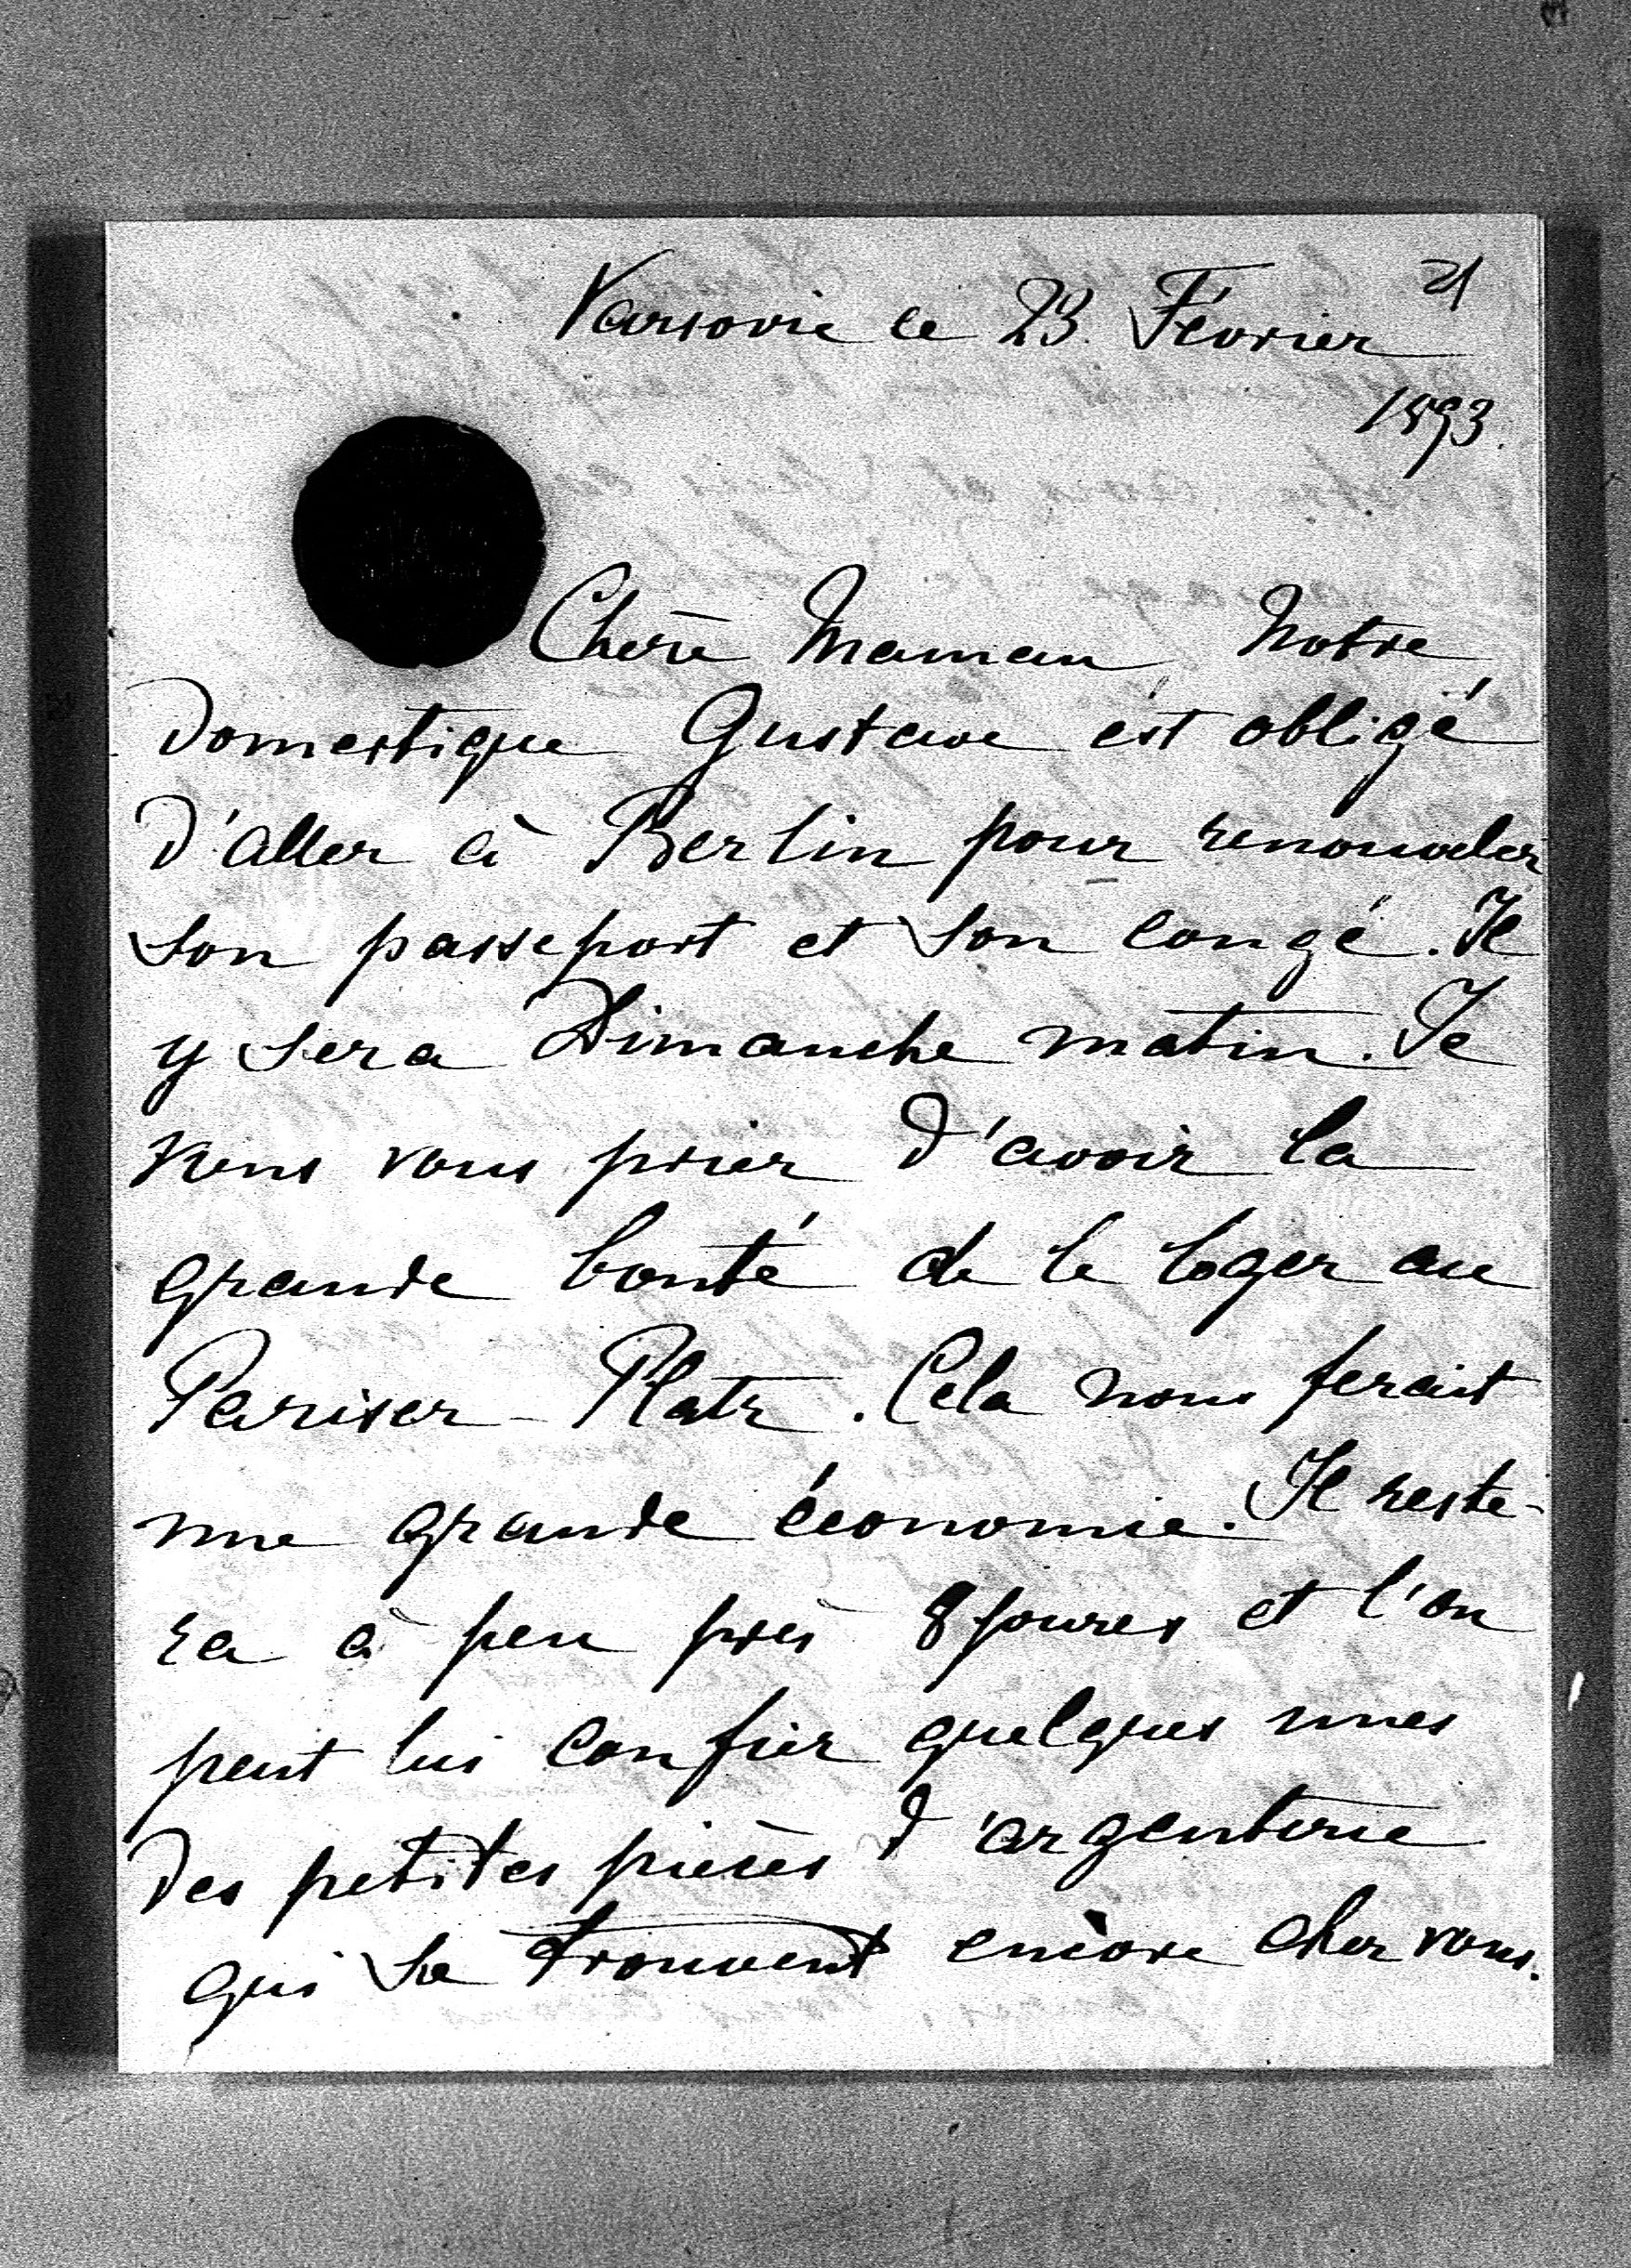 21
Varsovie ce 23. Février
1893.
Chère Maman, Notre
domestique Gustave est obligé
d'aller à Berlin pour renouveler
son passeport et son congé. Il
y sera Dimanche matin. Je
viens vous prier d'avoir la
grande bonté de le loger au
Pariser-Platz. Cela nous ferait
une grande économie. Il reste-
ra à peu près 8 joures et l'on
peut lui confier quelques unes
des petites pièces d'argenterie
qui se trouvent encore chez vous.